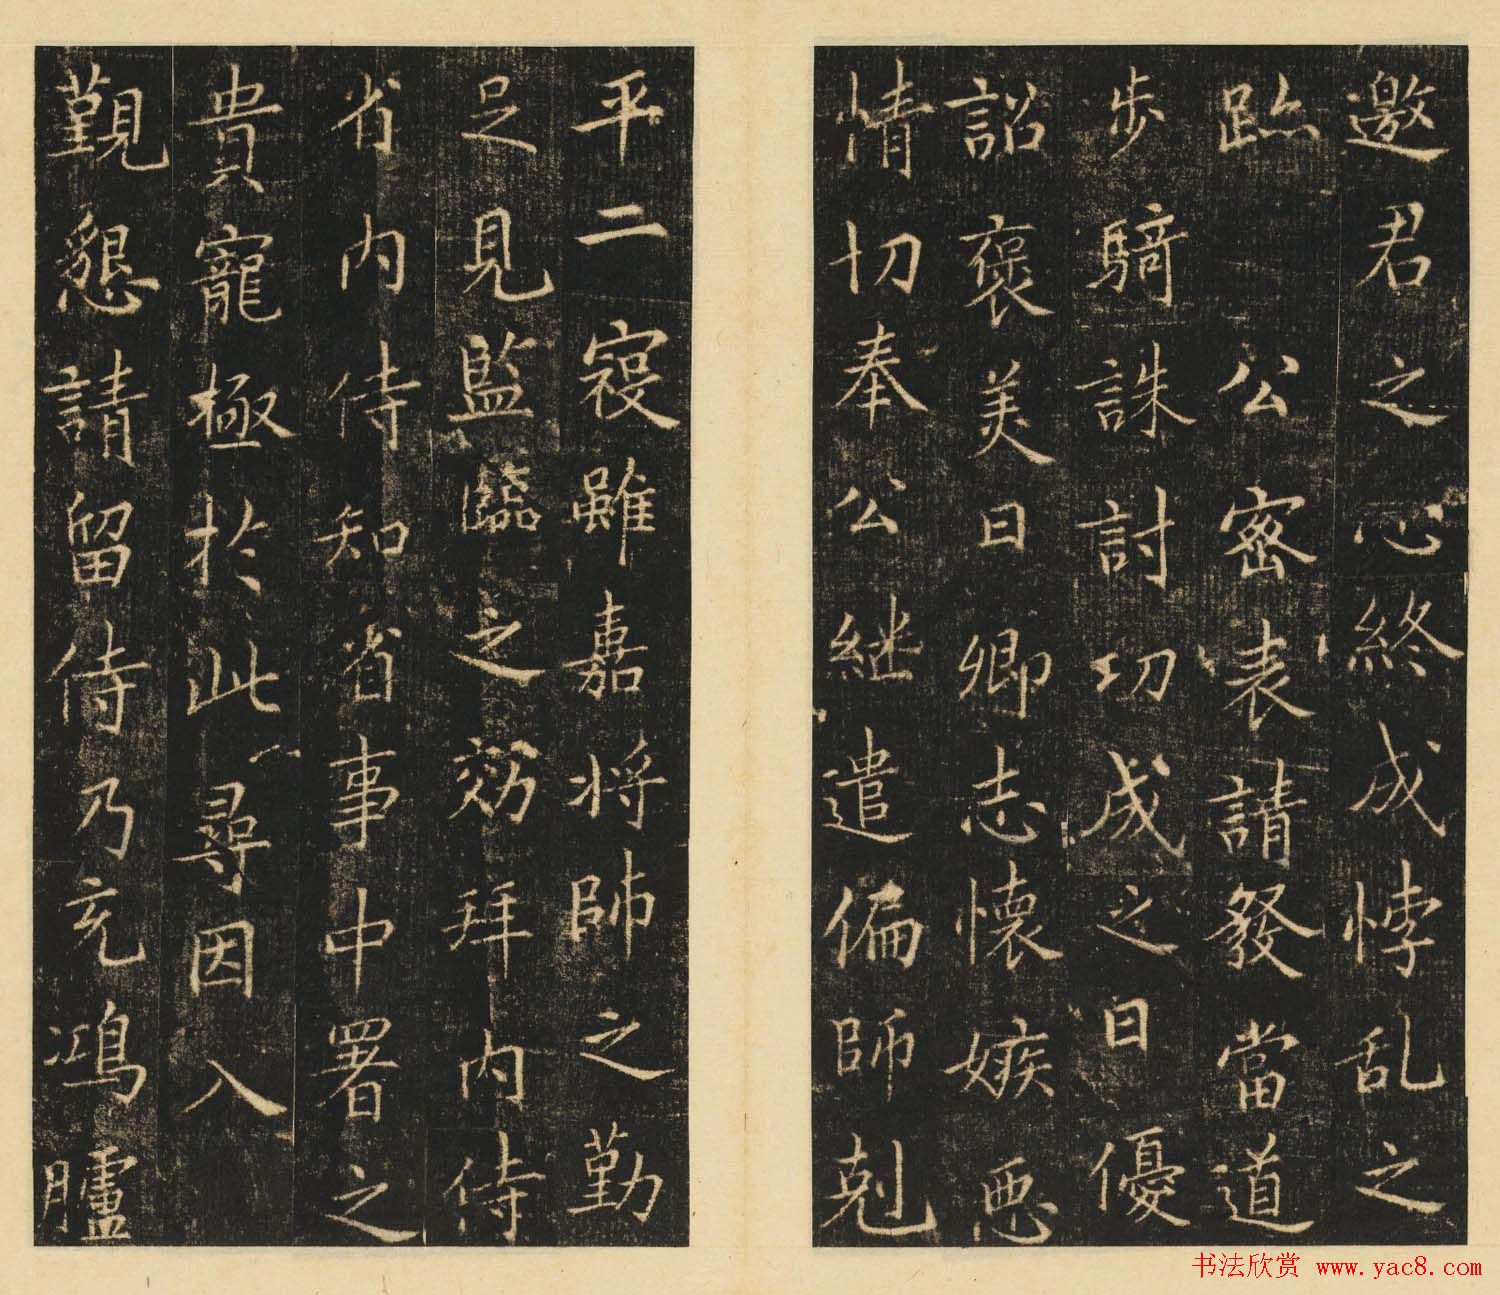 邀君之心終成悖乱之
跡公密表請發當道
步騎誅討功成之日優
詔褒美曰卿志懷嫉惡
情切奉公継遣偏師剋
平二寇雖嘉將帥之勤
足見監臨之效拜内侍
省内侍知省事中署之
貴寵極於此尋因入
覲懇請留侍乃充鴻臚
书法欣赏 www.yac8.com